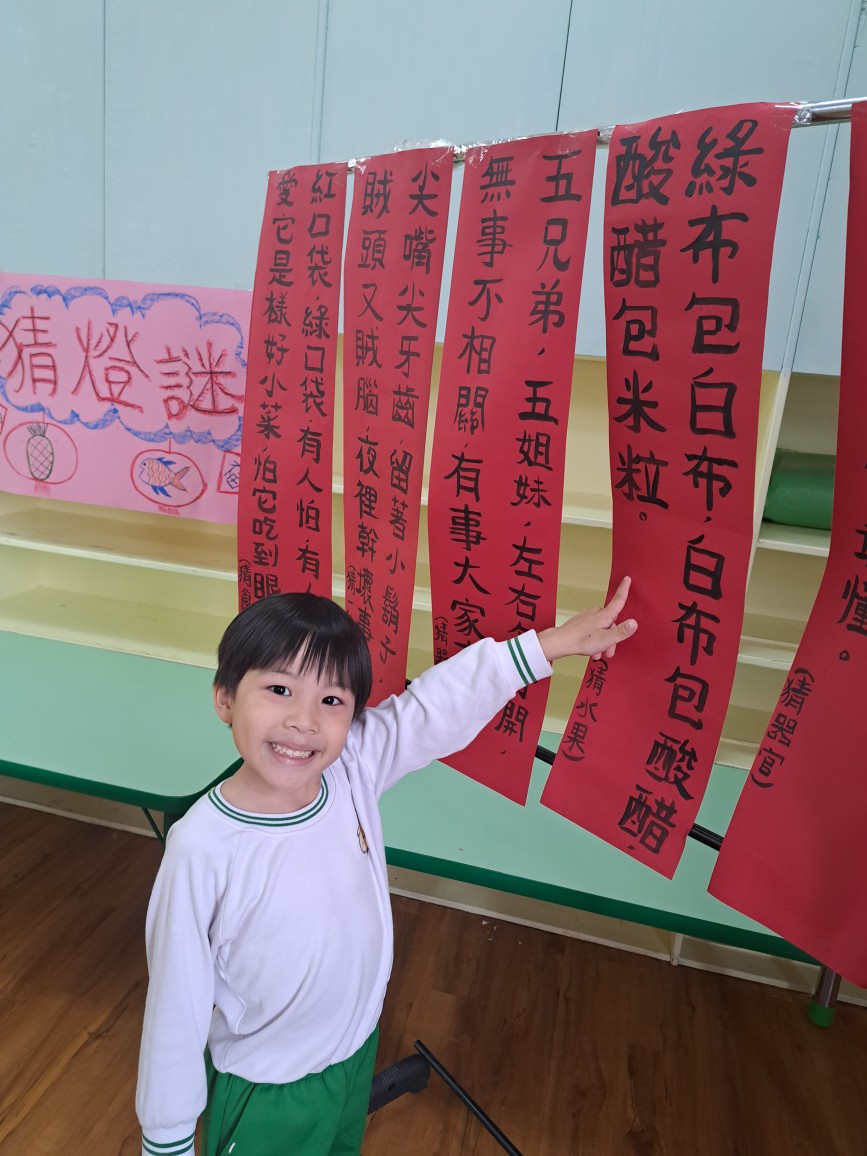 猜燈謎
紅口袋,綠口袋,有人怕,有人
愛它是樣好小菜,怕它吃到眼
(猜食
尖嘴尖牙齒,留著小鬍子,
賊頭又賊腦,夜裡幹壞事
(猜
五兄弟,五姐妹,左右開,
無事不相關,有事大家
(猜器
綠布包白布,白布包酸醋,
酸醋包米粒。
(猜水果)
煌。
(猜器官)